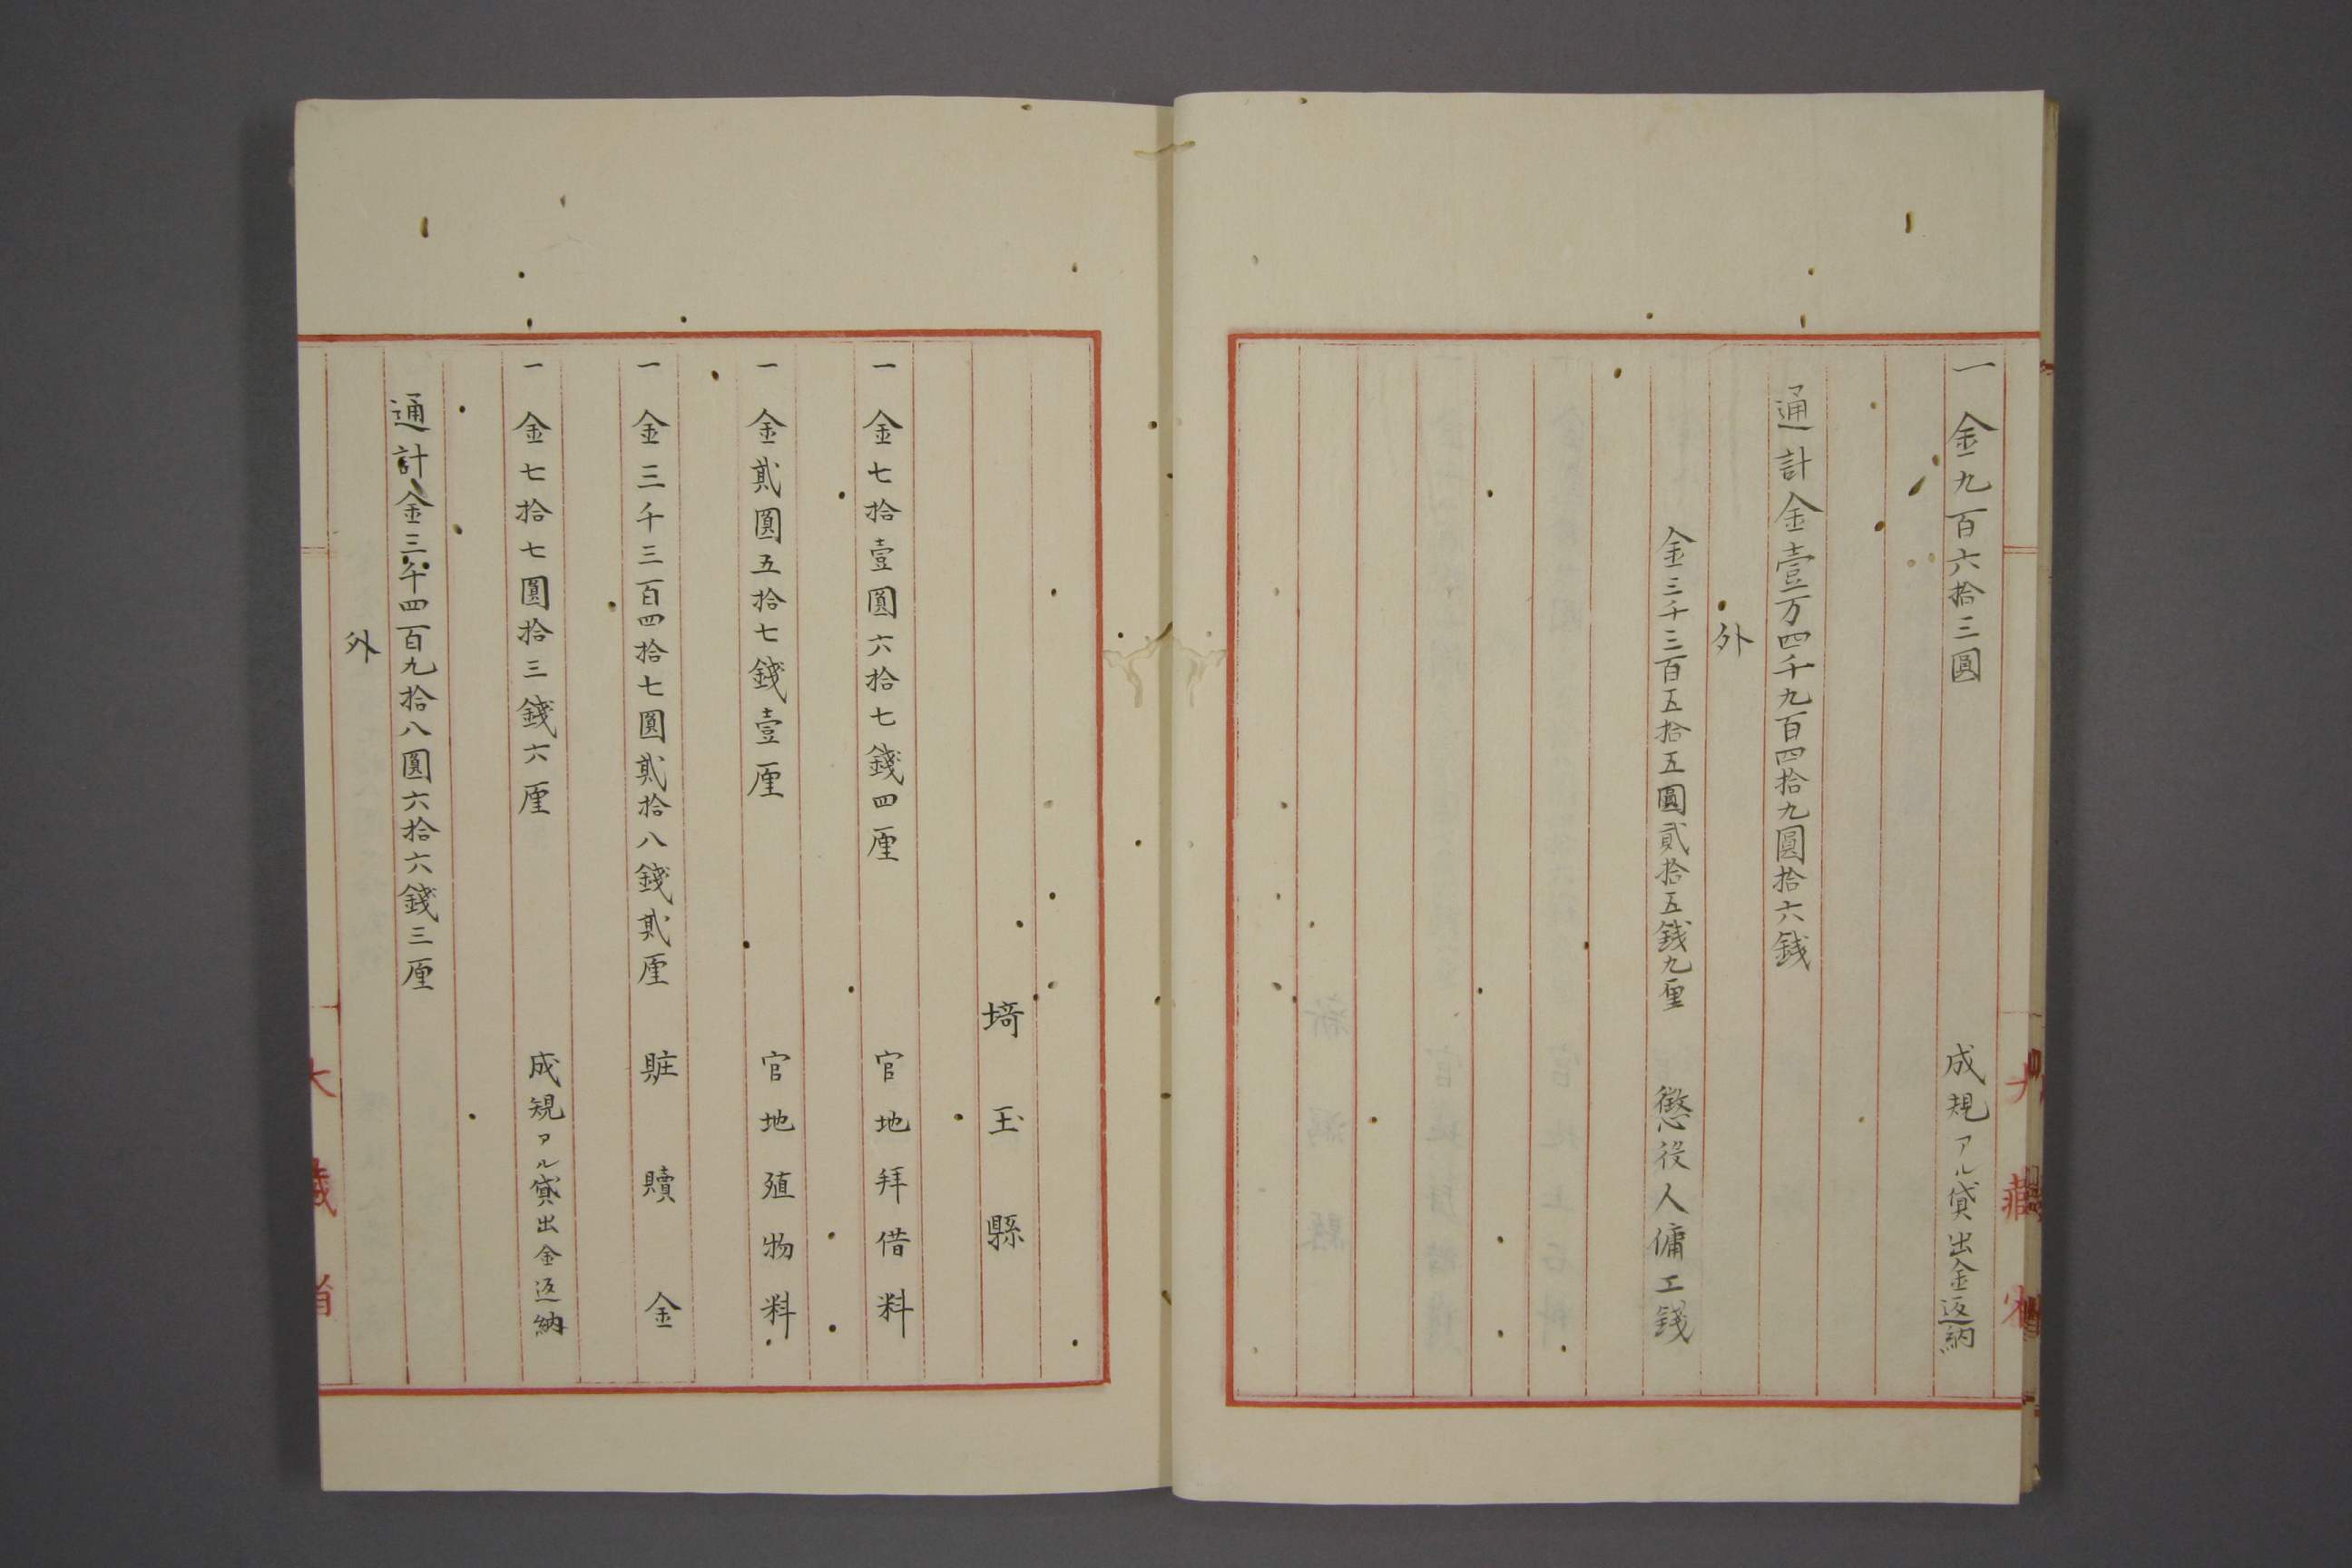 一金九百六拾三圓　成規アル貸出金返納
通計金壹万四千九百四拾九圓拾六銭
外
金三千三百五拾五圓貳拾五銭九厘　懲役人傭工錢
埼玉縣
一金七拾壹圓六拾七錢四厘　官地拜借料
一金貳圓五拾七錢壹厘　官地殖物料
一金三千三百四拾七圓貳拾八錢貳厘　賍贖金
一金七拾七圓拾三錢六厘　成規アル貸出金返納
通計金三千四百九拾八圓六拾六錢三厘
外
大藏省